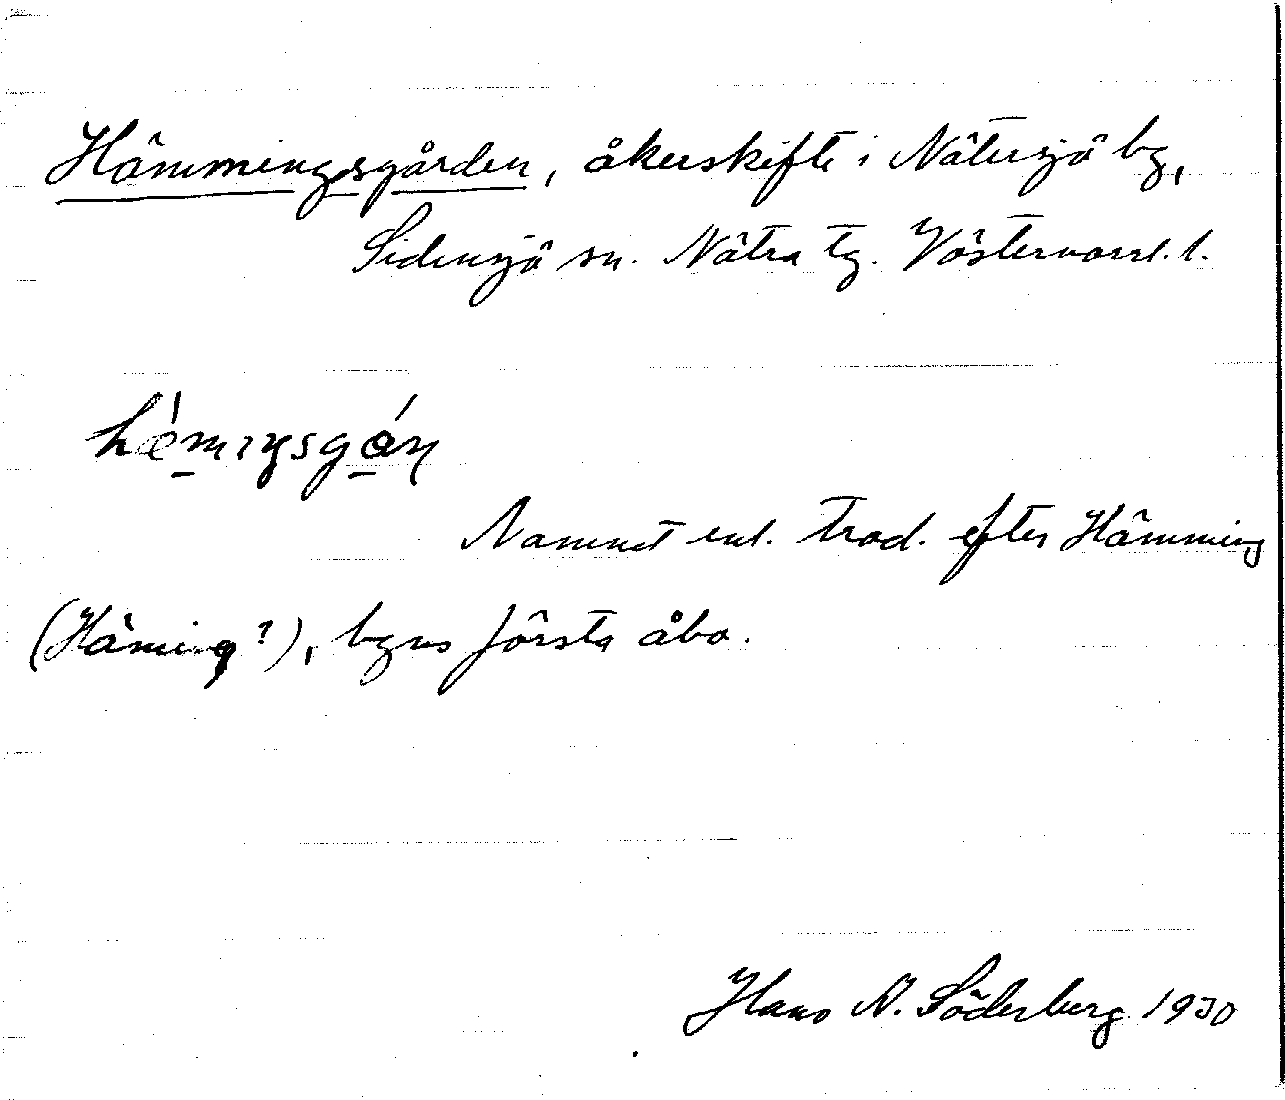 Hämmingsgården, åkerskifte i Nätersjö bg,
Sidensjö sn. Nätra tg. Västernorrl. l.
hǽmıŋsgán
Namnet enl. trad. efter Hämming
(Häming?), bgns första åbo.
Hans N. Söderberg 1930